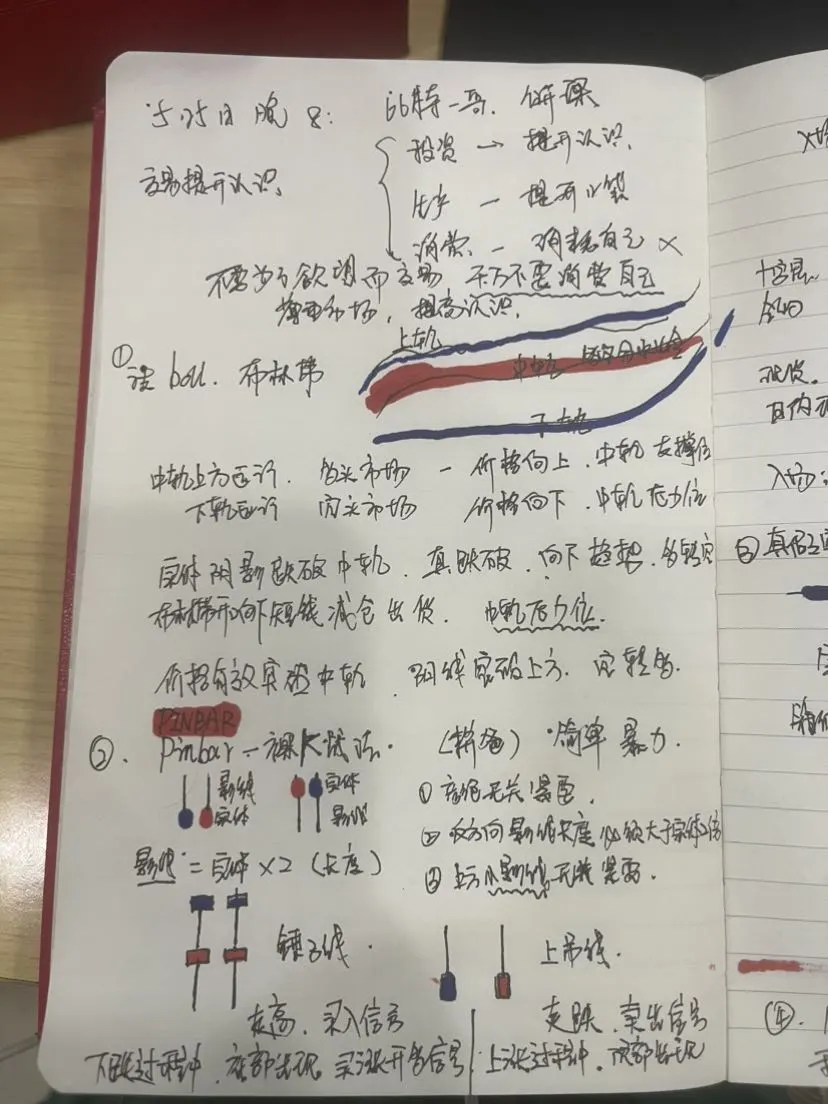 5月25日 晚8: 66特一哥. 讲课
交易提升认识.
投资 → 提升认识.
生产 — 提升
消费. — 消耗自己 ×
不要为了欲望而交易 千万不要消费自己
市场, 提高认识.
上轨
中轨
下轨
① 法 boll. 布林带
中轨上方运行. 多头市场 — 价格向上. 中轨支撑位
下轨运行 空头市场 价格向下. 中轨压力位
实体阴影跌破中轨. 真跌破. 向下趋势. 多转空
布林带开口向下短线减仓出货. 中轨压力位.
价格有效突破中轨. 阴线突破上方. 空转多.
PINBAR
②. Pinbar — 裸K战法. 简单 暴力.
影线
实体
实体
影线
① 颜色无关紧要.
② 反方向影线长度必须大于实体2倍
③ 小影线无关紧要.
影线 = 实体 ×2 (长度)
锤子线.
上吊线.
走高. 买入信号
走跌. 卖出信号
下跌过程中. 底部出现. 买涨开多信号
上涨过程中. 顶部出现
十字星
入场:
③ 真假
④.